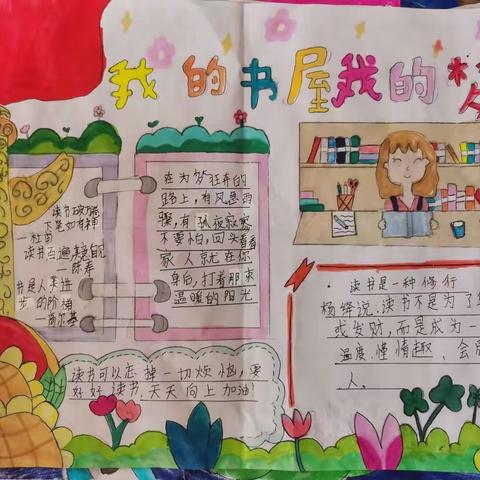 我的书屋我的梦
读书破万卷
下笔如有神
—杜甫
读书百遍其义自见
—陈寿
书是人类进
步的阶梯
—高尔基
在为梦狂奔的
路上,有风急雨
骤,有孤夜寂寥
不要怕,回头看看
家人就在你
身后,打着那束
温暖的阳光
读书是一种修行
杨绛说:读书不是为了
或发财,而是成为一
温度、懂情趣、会
人。
读书可以忘掉一切烦恼,要
好好读书,天天向上加油!